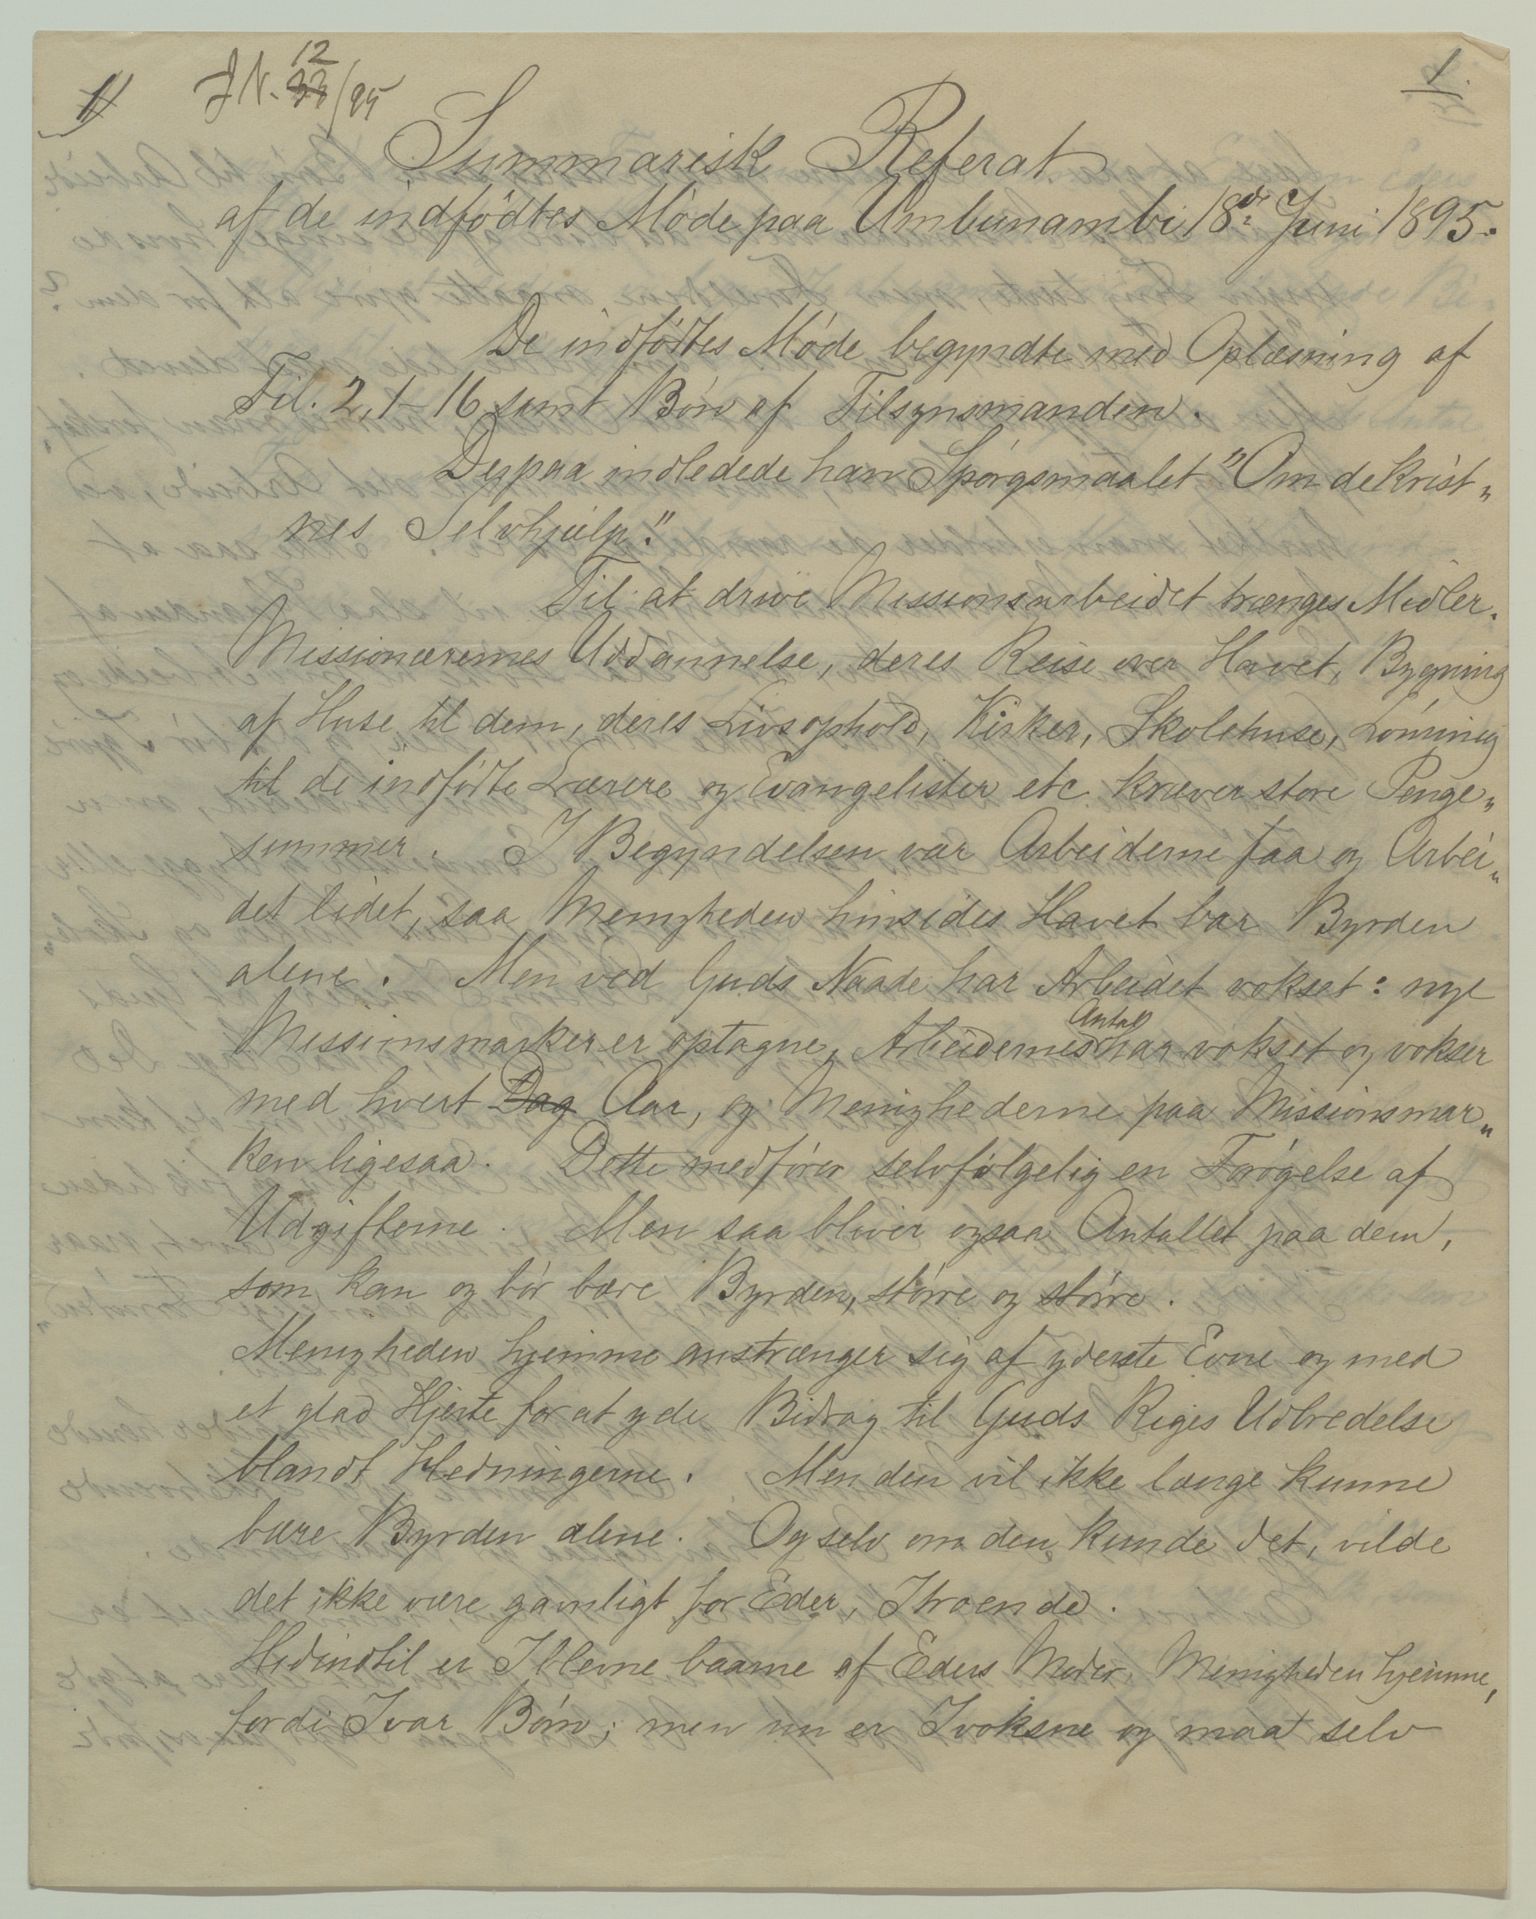 1) J N. 12/95 1.
Summarisk Referat
af de indfødtes Møde paa Umbunambi 18de Juni 1895.
De indfødtes Møde begyndte med Oplæsning af
Fil. 2, 1-16 samt Bøn af Tilsynsmanden.
Derpaa indledede han Spørgsmaalet "Om de krist„
nes Selvhjælp".
Til at drive Missionsarbeidet trænges Midler.
Missionærernes Uddannelse, deres Reise over Havet, Bygning
af Huse til dem, deres Livsophold, Kirker, Skolehuse, Lønning
til de indfødte Lærere og Evangelister etc. kræver store Penge„
summer. I Begyndelsen var Arbeiderne faa og Arbei„
det lidet, saa Menigheden hinsides Havet bar Byrden
alene. Men ved Guds Naade har Arbeidet vokset: nye
Missionsmarker er optagne, Arbeidernes Antal har vokset og vokser
med hvert Dag Aar, og Menighederne paa Missionsmar„
ken ligesaa. Dette medfører selvfølgelig en Forøgelse af
Udgifterne. Men saa bliver ogsaa Antallet paa dem,
som kan og bør bære Byrden, større og større.
Menigheden hjemme anstrænger sig af yderste Evne og med
et glad Hjerte for at yde Bidrag til Guds Riges Udbredelse
blandt Hedningerne. Men den vil ikke længe kunne
bære Byrden alene. Og selv om den kunde det, vilde
det ikke være gavnligt for Eder, I troende.
Hidindtil er I blevne baarne af Eders Moder, Menigheden hjemme,
fordi I var Børn; men nu er I voksne og maa selv